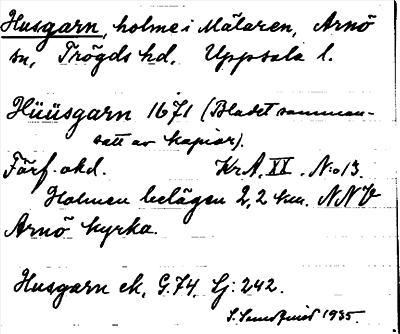 Husgarn, holme i Mälaren, Arnö
sn, Trögds hd. Uppsala l.
Hüüsgarn 1671 (Bladet samman-
satt av kopior).
Förf. okd. Kr.A. XX. No 13.
Holmen belägen 2,2 km. NNV
Arnö kyrka.
Husgarn ek. G. 74. Lj: 242.
1935.